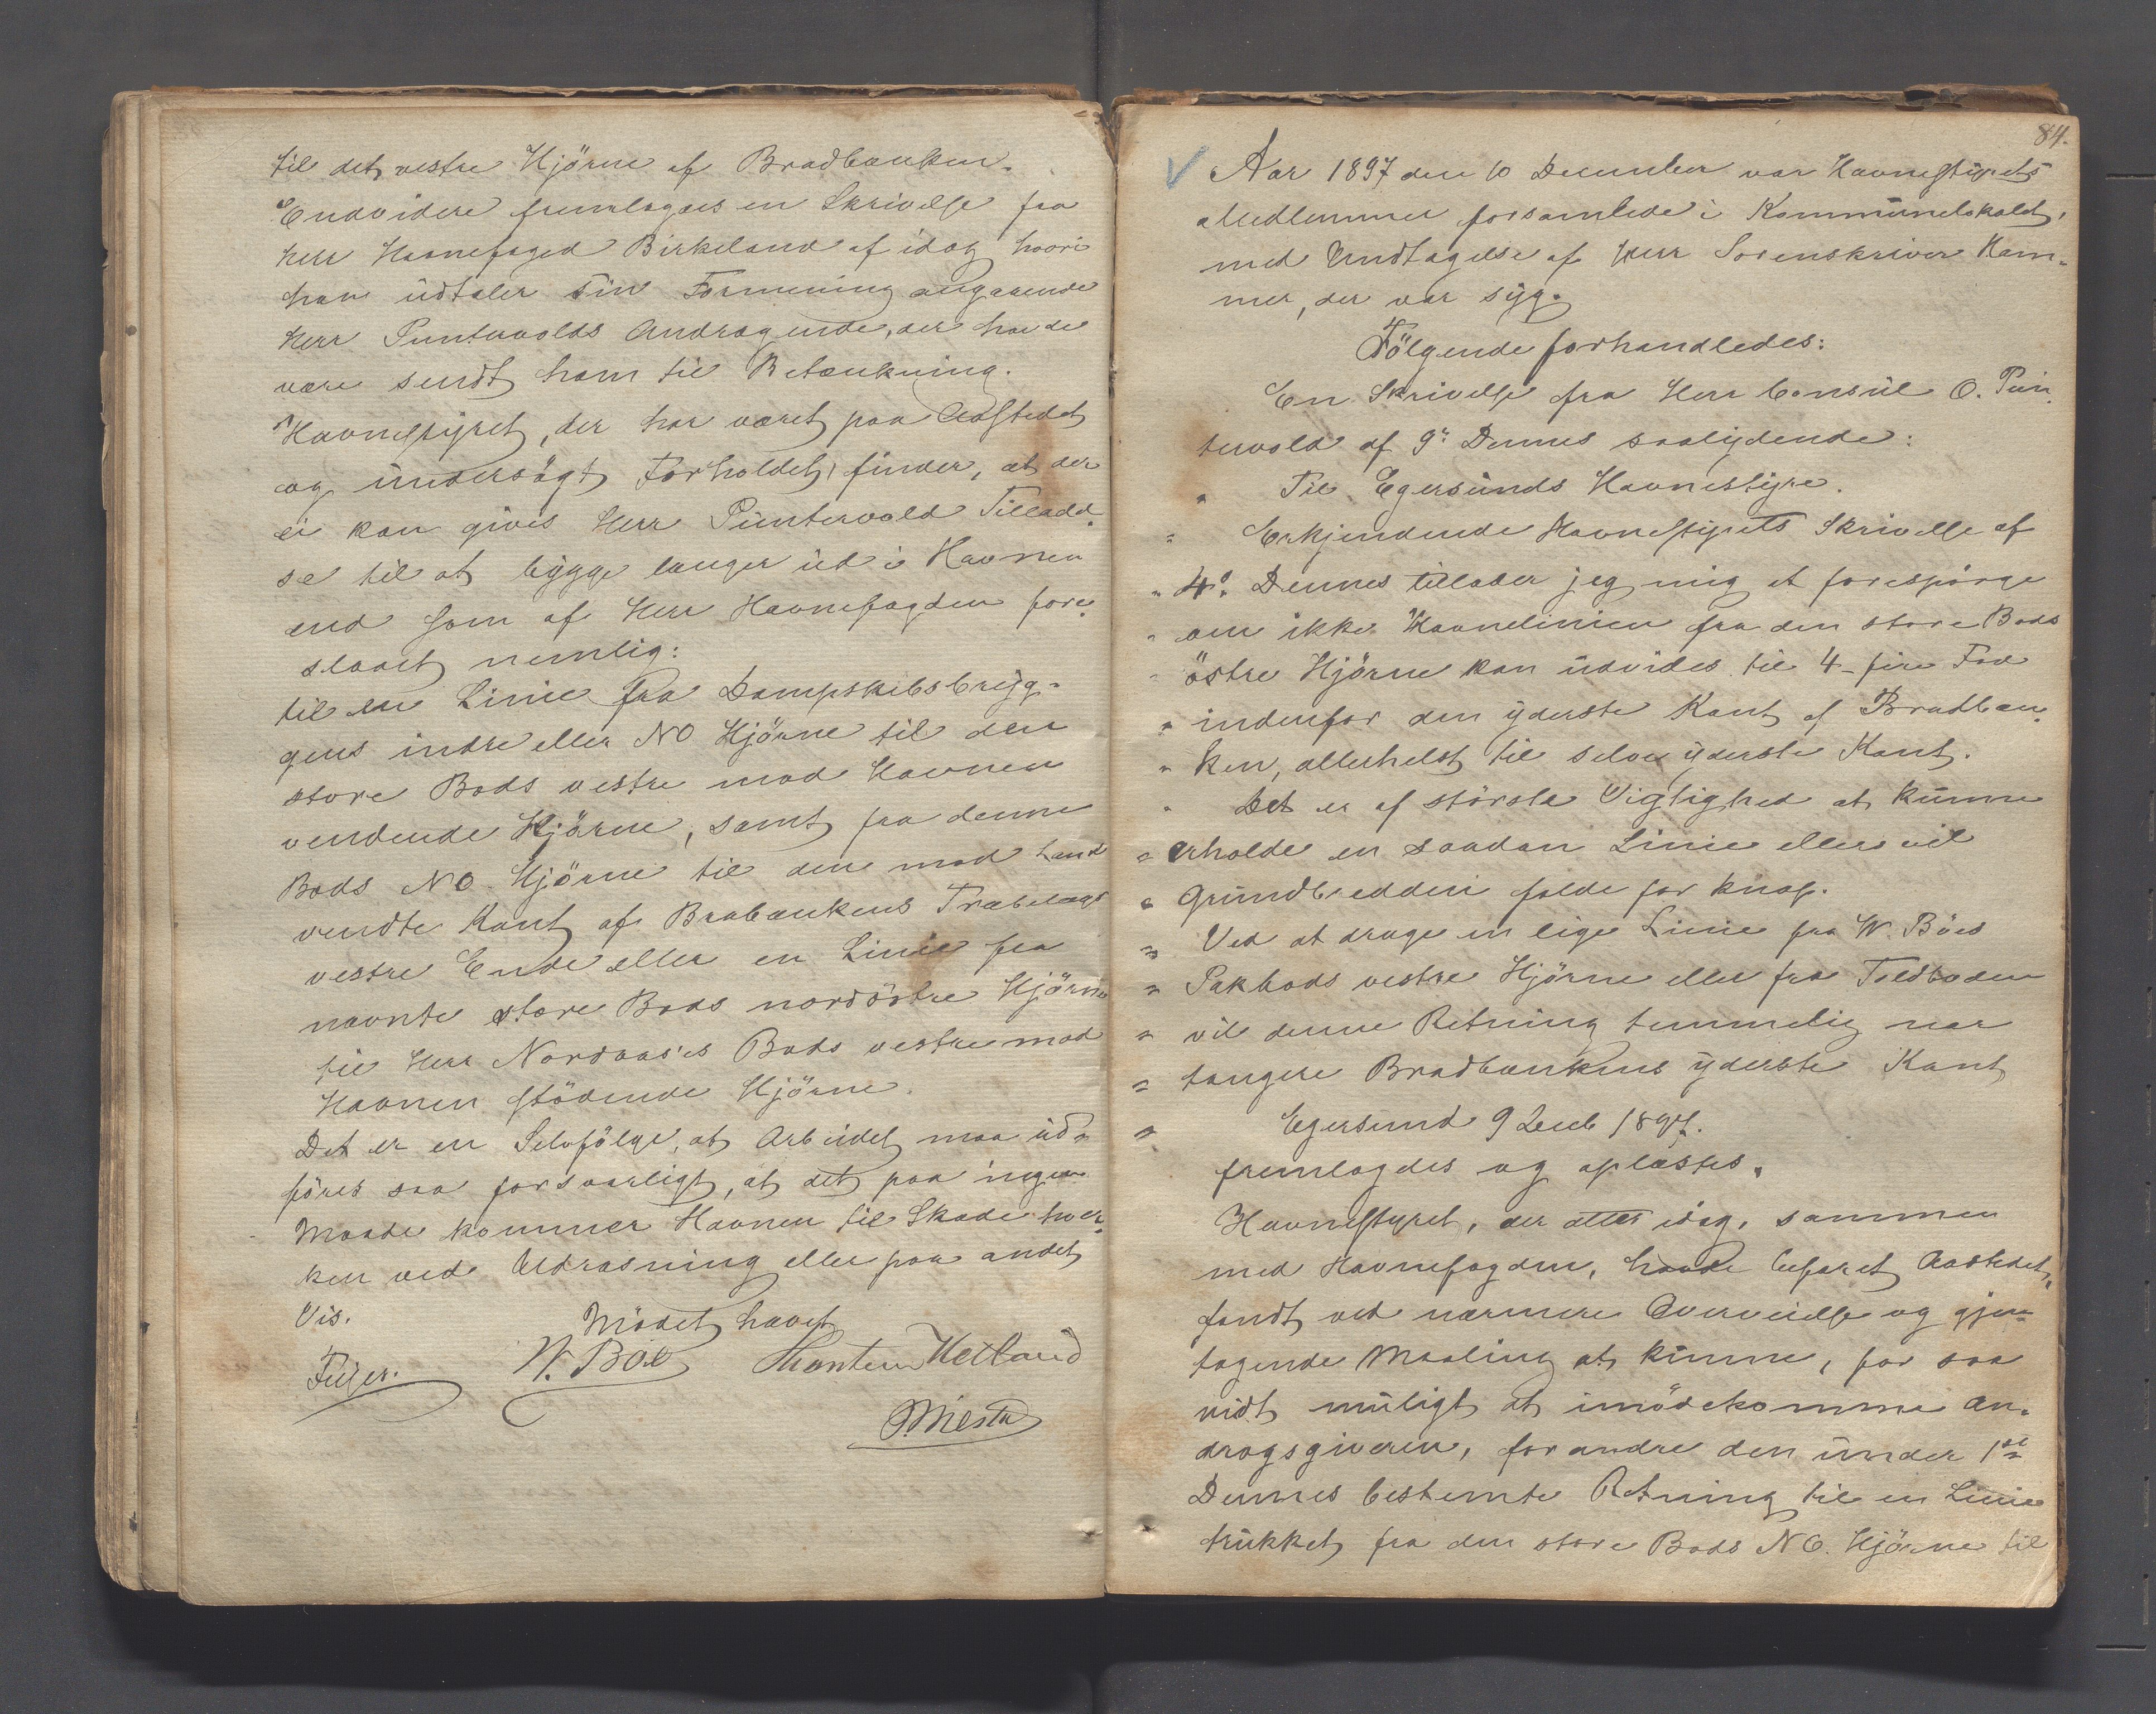 til det vestre Hjörne af Bradbænken.
Endvidere fremlagdes en Skrivelse fra
Herr Havnefoged Birkeland af idag hvori
han udtaler sin Formening angaaende
Herr Puntervolds Andragende, der havde
være sendt ham til Betænkning.
Havnestyret, der har været paa Aastedet
og undersögt Forholdet, finder, at der
ei kan gives Herr Puntervold Tilladel-
se til at bygge længer ud i Havnen
end som af Herr Havnefogden fore-
slaaet nemlig:
til en Linie fra Dampskibsbryg-
gens indre eller NO Hjörne til den
store Bods vestre mod Havnen
vendende Hjörne, samt fra denne
Bods NO. Hjörne til den mod Land
vendte Kant af Brabænkens Træbelægs
vestre Ende eller en Linie fra
nævnte store Bods nordöstre Hjörne
til Herr Nordaas's Bods vestre mod
Havnen stödende Hjörne.
Det er en Selvfölge, at Arbeidet maa ud-
föres saa forsvarligt, at det paa ingen
Maade kommer Havnen til Skade hver-
ken ved Udrasning eller paa andet
Vis.
Mödet hævet
Feyer. W. Böe Thontem Hetland
P. Mesta
84.
Aar 1897 den 10 December var Havnestyrets
Medlemmer forsamlede i Kommunelokalet,
med Undtagelse af Herr Sorenskriver Ham-
mer, der var syg.
Fölgende forhandledes:
En Skrivelse fra Herr Consul O. Pun-
tervold af 9de Dennes saalydende:
" Til Egersunds Havnestyre.
" Erkjendende Havnestyrets Skrivelse af
" 4de Dennes tillader jeg mig at forespörge
" om ikke Havnelinien fra den store Bods
" östre Hjörne kan udvides til 4 - fire Fod
" indenfor den yderste Kant af Bradbæn-
" ken, allerhelst til selve yderste Kant.
" Det er af störste Vigtighed at kunne
" erholde en saadan Linie eller vil
" Grundbredden falde for knap.
" Ved at drage en lige Linie fra W. Böes
" Pakbods vestre Hjörne eller fra Toldboden
" vil denne Retning temmelig nær
" tangere Bradbænkens yderste Kant
" Egersund 9 Decb 1897.
fremlagdes og oplæstes.
Havnestyret, der atter idag, sammen
med Havnefogden, havde befaret Aastedet,
fandt ved nærmere Overveielse og gjen-
tagende Maaling at kunne, for saa
vidt muligt at imödekomme An-
dragsgiveren, forandre den under 1ste
Dennes bestemte Retning til en Linie
trukket fra den store Bods NO. Hjörne til